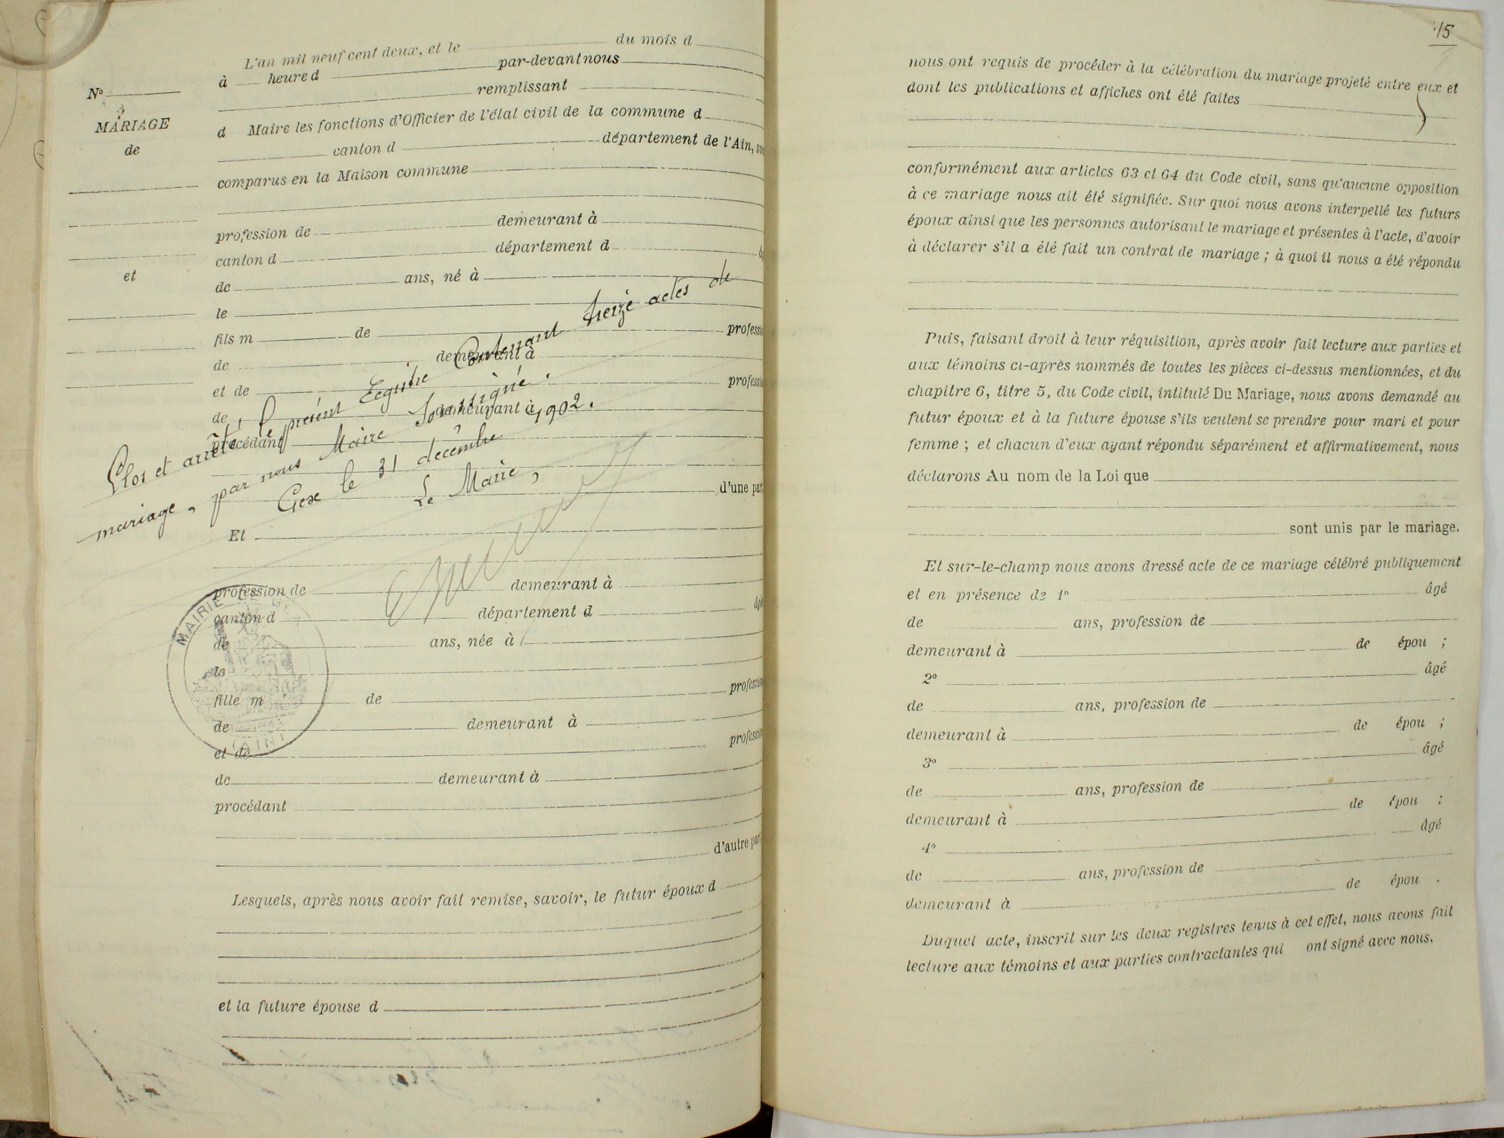 N°
MARIAGE
de
et
L'an mil neuf cent deux, et le du mois d
à heure d par-devant nous
remplissant
d Maire les fonctions d'Officier de l'état civil de la commune d
canton d département de l'Ain, son
comparus en la Maison commune
profession de demeurant à
canton d département d
de ans, né à
le
fils m de profess
de demeurant à
et de profess
de demeurant à
procédant
d'une par
Clos et arrêté le présent Registre Contenant treize actes de
mariage, par nous Maire Soussigné.
Gex le 31 décembre 1902.
Le Maire,
Et
profession de demeurant à
canton d département d
de ans, née à
le
fille m de profession
de demeurant à
et de profession
de demeurant à
procédant
d'autre part
MAIRIE DE GEX
(AIN)
Lesquels, après nous avoir fait remise, savoir, le futur époux d
et la future épouse d
15
nous ont requis de procéder à la célébration du mariage projeté entre eux et
dont les publications et affiches ont été faites
conformément aux articles 63 et 64 du Code civil, sans qu'aucune opposition
à ce mariage nous ait été signifiée. Sur quoi nous avons interpellé les futurs
époux ainsi que les personnes autorisant le mariage et présentes à l'acte, d'avoir
à déclarer s'il a été fait un contrat de mariage ; à quoi il nous a été répondu
Puis, faisant droit à leur réquisition, après avoir fait lecture aux parties et
aux témoins ci-après nommés de toutes les pièces ci-dessus mentionnées, et du
chapitre 6, titre 5, du Code civil, intitulé Du Mariage, nous avons demandé au
futur époux et à la future épouse s'ils veulent se prendre pour mari et pour
femme ; et chacun d'eux ayant répondu séparément et affirmativement, nous
déclarons Au nom de la Loi que
sont unis par le mariage.
Et sur-le-champ nous avons dressé acte de ce mariage célébré publiquement
et en présence de 1° âgé
de ans, profession de
demeurant à de épou ;
2° âgé
de ans, profession de
demeurant à de épou ;
3° âgé
de ans, profession de
demeurant à de épou ;
4° âgé
de ans, profession de
demeurant à de épou .
Duquel acte, inscrit sur les deux registres tenus à cet effet, nous avons fait
lecture aux témoins et aux parties contractantes qui ont signé avec nous.